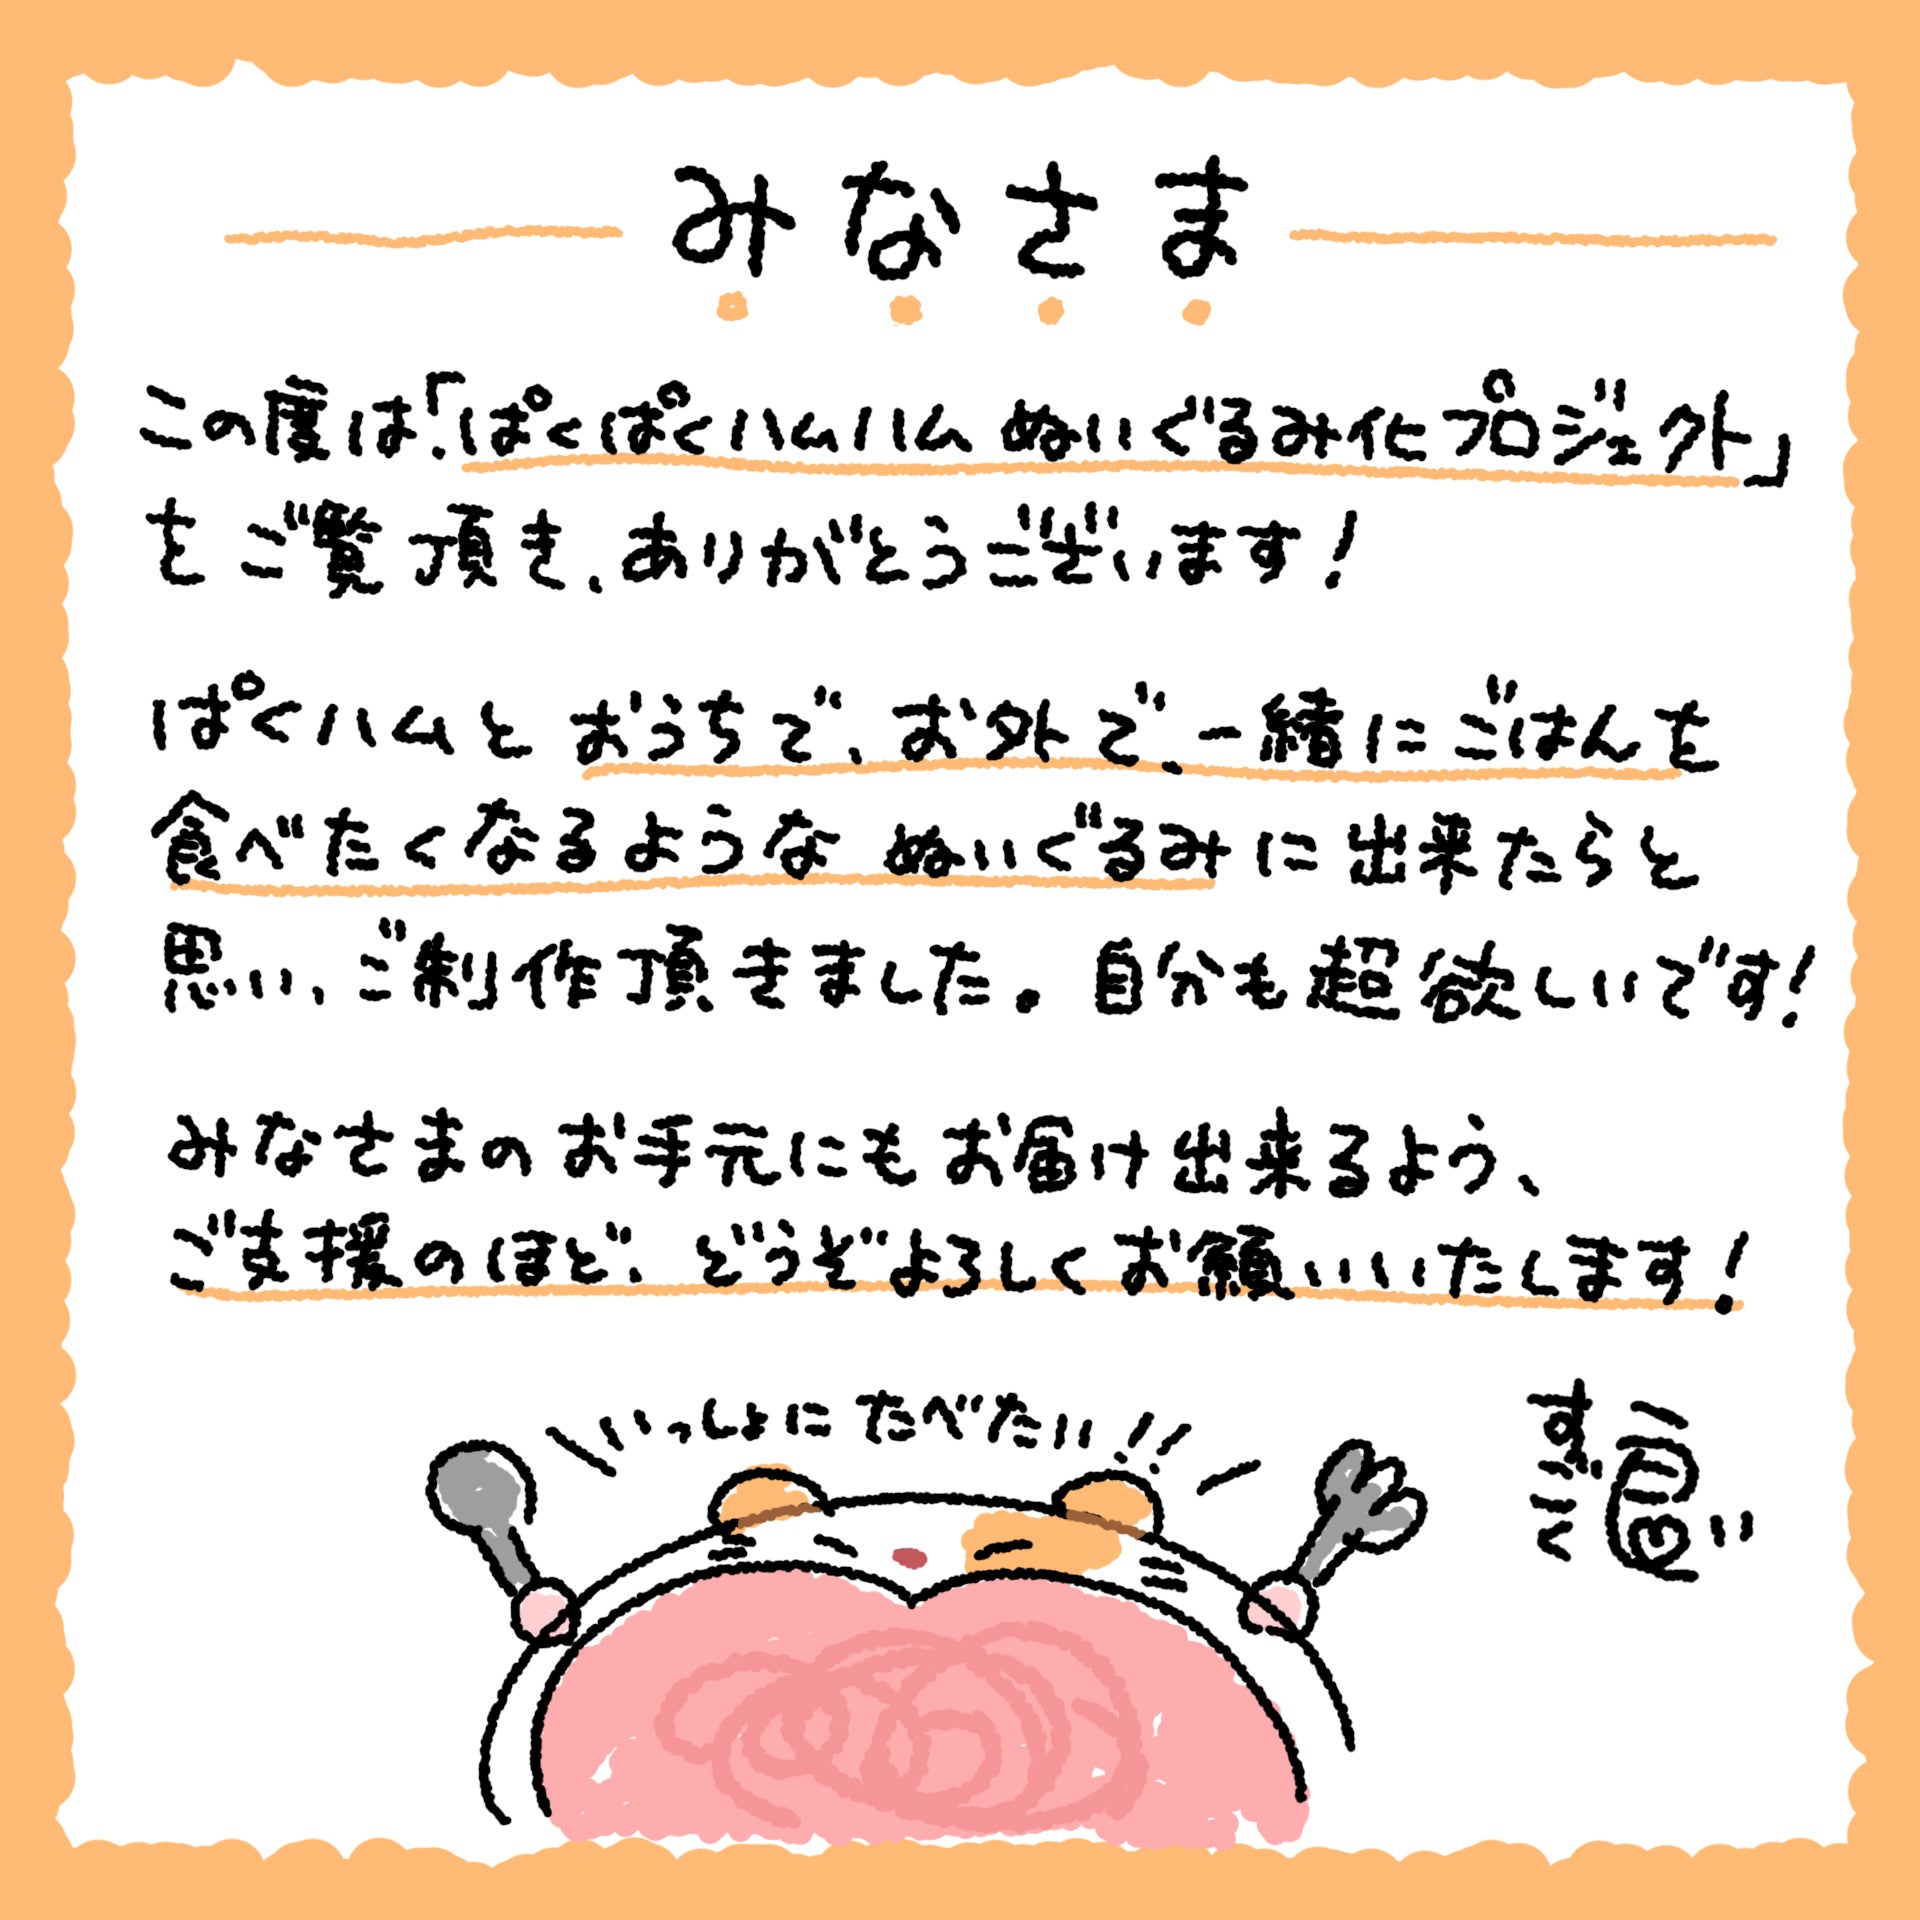 みなさま
この度は、「ぱくぱくハムハム ぬいぐるみ化プロジェクト」
をご覧頂き、ありがとうございます！
ぱくハムと おうちで、お外で、一緒にごはんを
食べたくなるような ぬいぐるみに出来たらと
思い、ご制作頂きました。自分も超欲しいです！
みなさまのお手元にもお届け出来るよう、
ご支援のほど、どうぞよろしくお願いいたします！
いっしょに たべたい!!